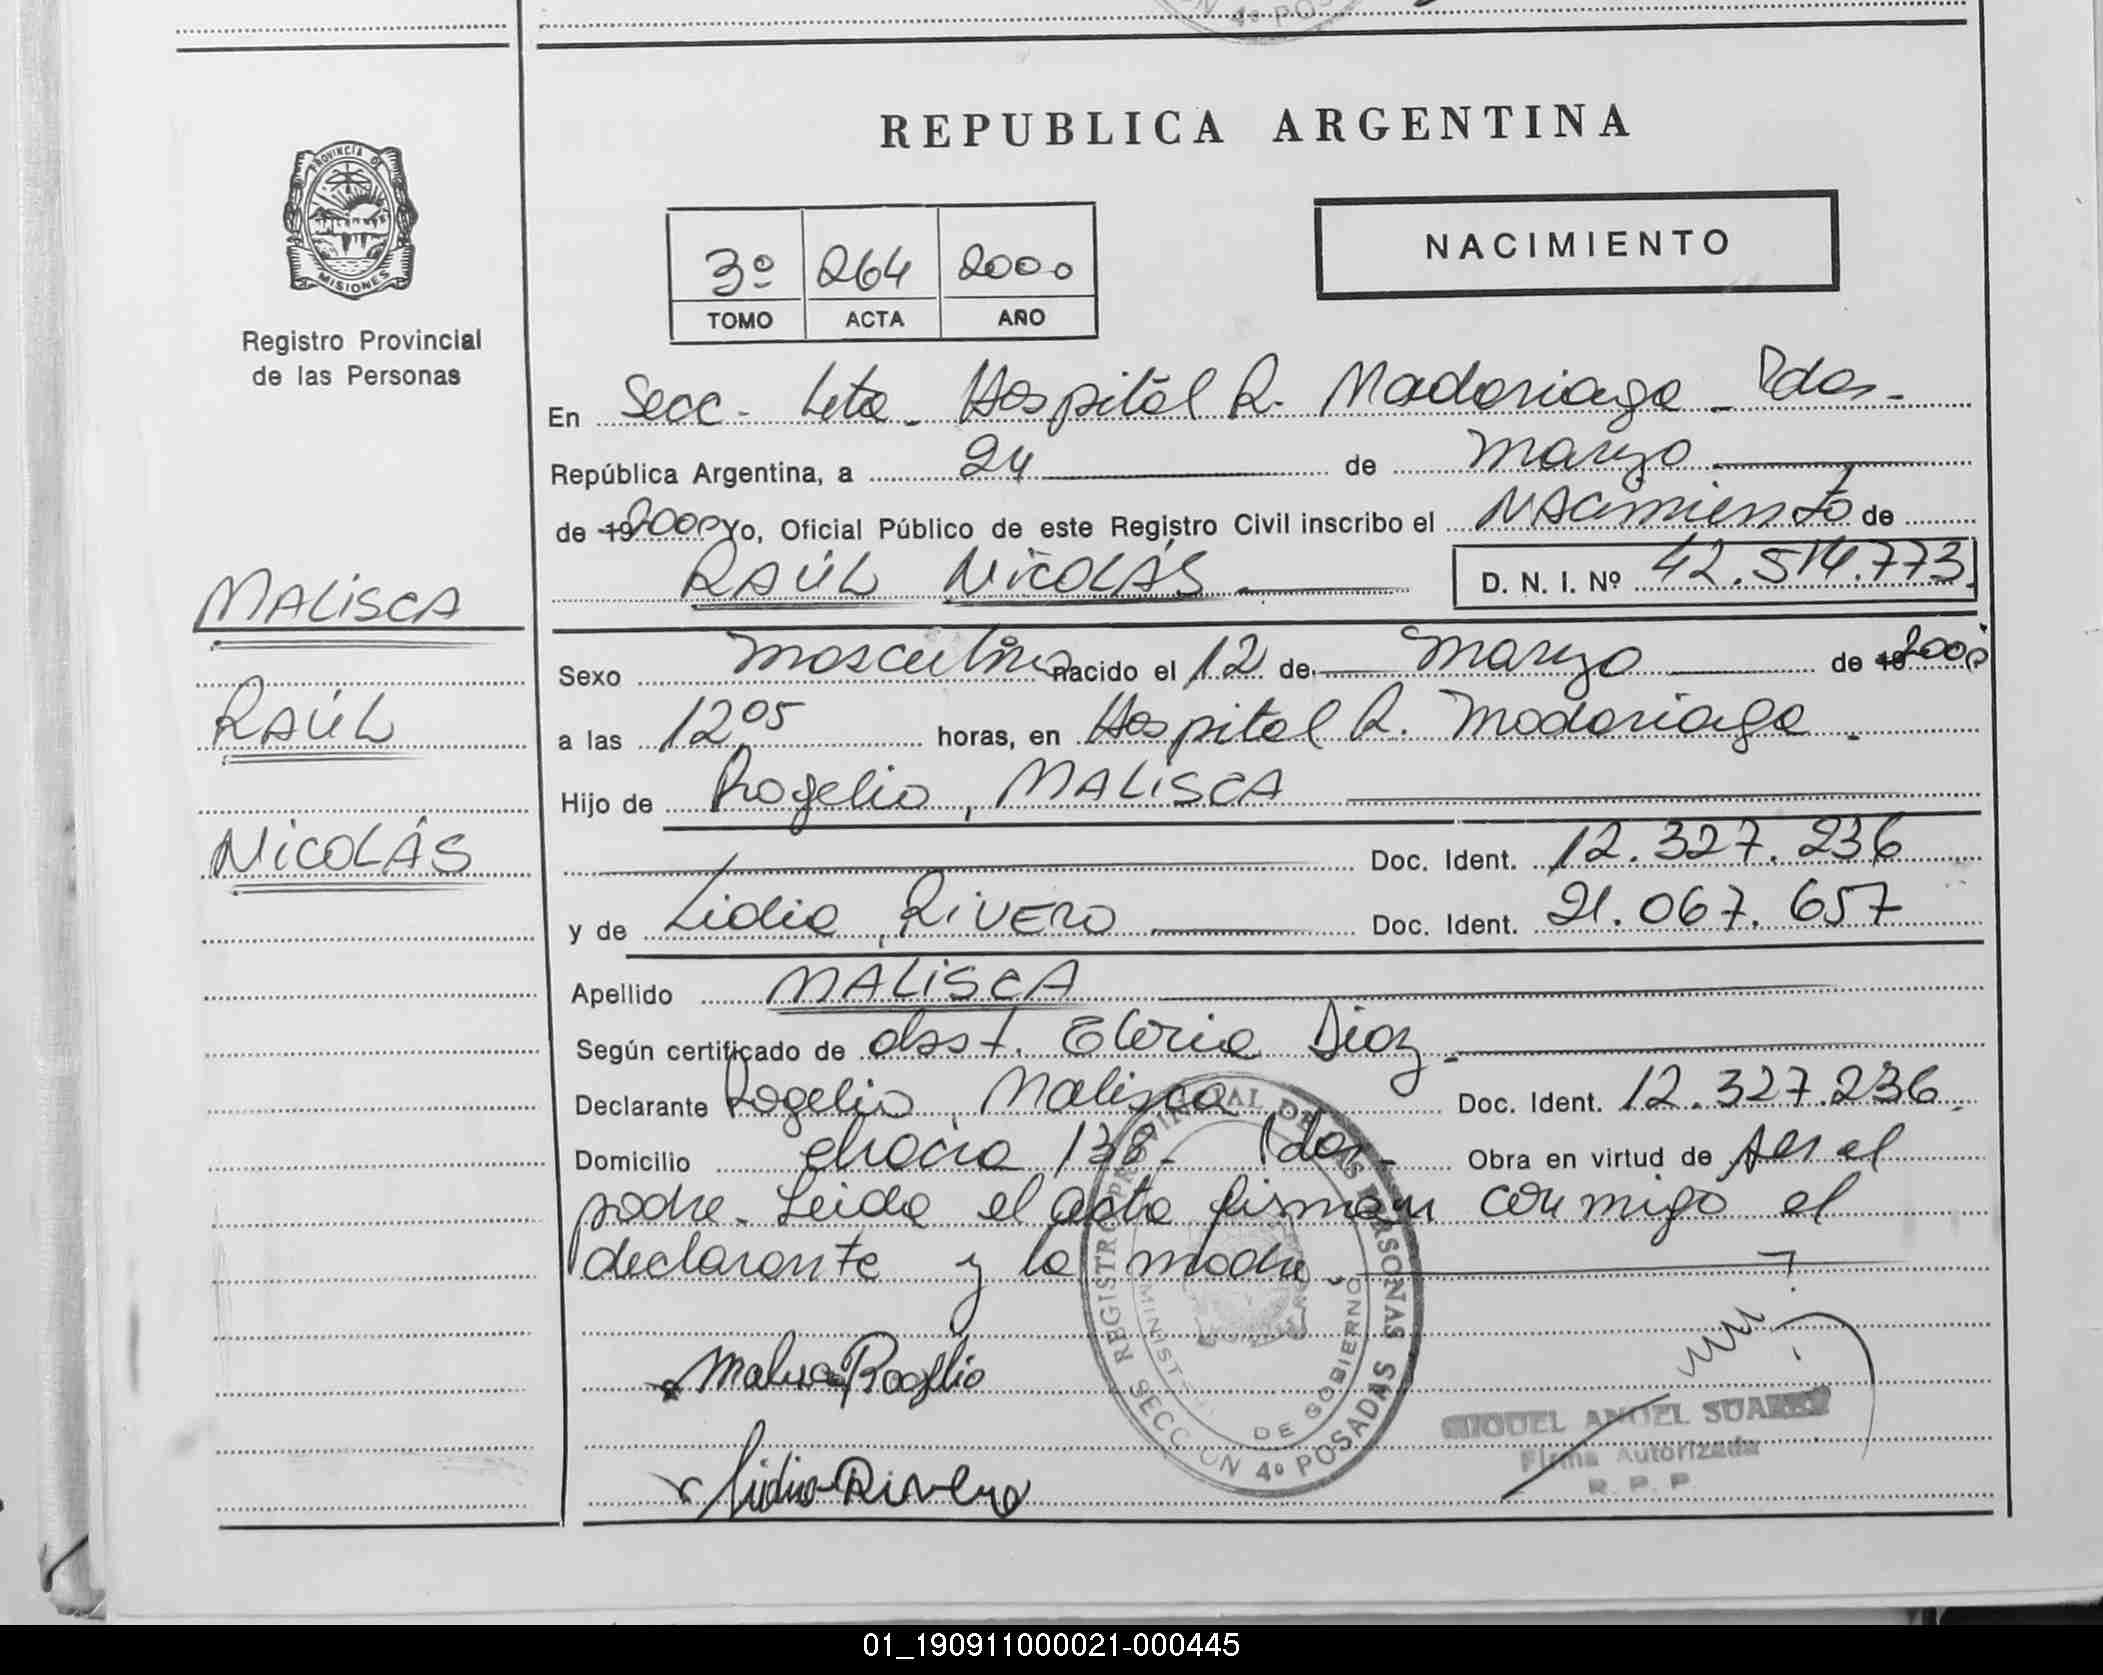 REPUBLICA ARGENTINA
PROVINCIA DE
MISIONES
Registro Provincial
de las Personas
NACIMIENTO
3º 264 2000
TOMO ACTA AÑO
En Secc. 4ta. Hospital R. Madariaga - Pdas.
República Argentina, a 24 de Marzo
de 19 2000 Yo, Oficial Público de este Registro Civil inscribo el NAcimiento de
RAÚL NICOLÁS D. N. I. Nº 42.514.773
MALISCA
RAÚL
NICOLÁS
Sexo masculino nacido el 12 de marzo de 19 2000
a las 12 05 horas, en Hospital R. Madariaga.
Hijo de Rogelio, MALISCA
Doc. Ident. 12.327.236
y de Lidia, RIVERO Doc. Ident. 21.067.657
Apellido MALISCA
Según certificado de obst. Gloria Diaz
Declarante Rogelio, Malisca Doc. Ident. 12.327.236.
Domicilio chacra 138 - Pdas - Obra en virtud de ser el
padre. Leida el acta firman conmigo el
declarante y la madre.
REGISTRO PROVINCIAL DE LAS PERSONAS
MINIST DE GOBIERNO
SECCION 4º POSADAS
Rogelio
Lidia Rivero
MIGUEL ANGEL SUAREZ
Firma Autorizada
R. P. P
01_190911000021-000445